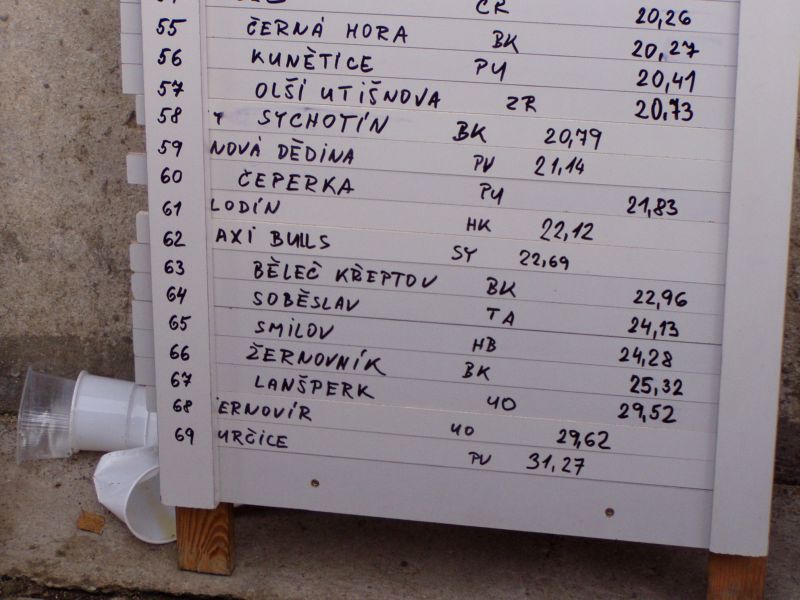 ČR 20,26
55 ČERNÁ HORA BK 20,27
56 KUNĚTICE PU 20,41
57 OLŠÍ UTIŠNOVA ZR 20,73
58 SYCHOTÍN BK 20,79
59 NOVÁ DĚDINA PV 21,14
60 ČEPERKA PU 21,83
61 LODÍN HK 22,12
62 AXI BULLS SY 22,69
63 BĚLEČ KŘEPTOV BK 22,96
64 SOBĚSLAV TA 24,13
65 SMILOV HB 24,28
66 ŽERNOVNÍK BK 25,32
67 LANŠPERK UO 29,52
68 ERNOVÍR UO 29,62
69 URČICE PV 31,27